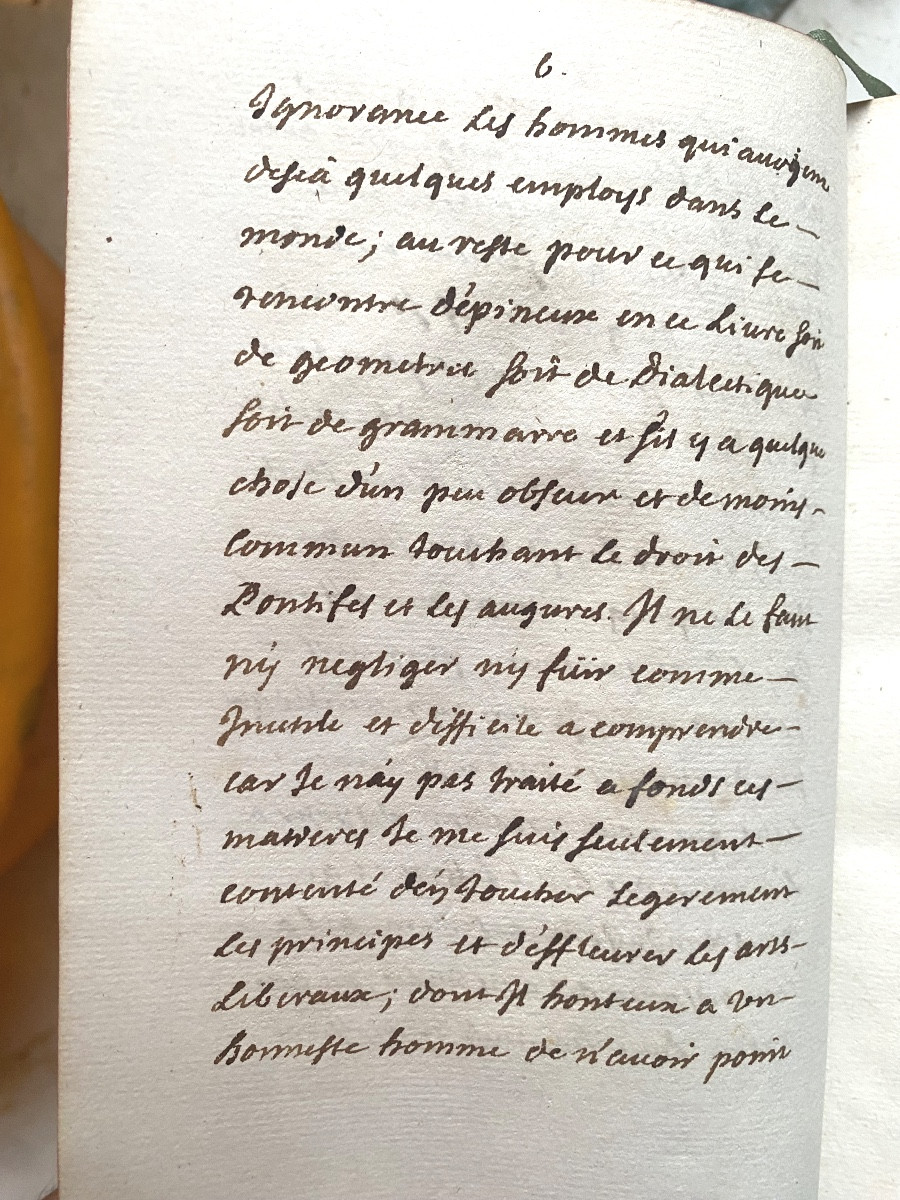 6.
Ignorance les hommes qui avoyent
desià quelques employs dans le —
monde; au reste pour ce qui se —
rencontre d'épineux en ce Livre soit
de geometrie soit de Dialectique
soit de grammairre et s'il y a quelque
chose d'un peu obscur et de moins -
commun touchant le droit des —
Pontifes et les augures. Il ne le faut
nÿ negliger nÿ füir comme —
Inutile et difficile a comprendre -
car Je n'ay pas traité a fonds ces -
matieres Je me suis seulement —
contenté d'éy toucher legerement
les principes et d'éffleurer les arts -
Liberaux; dont Il honteux a vn -
honneste homme de n'avoir point